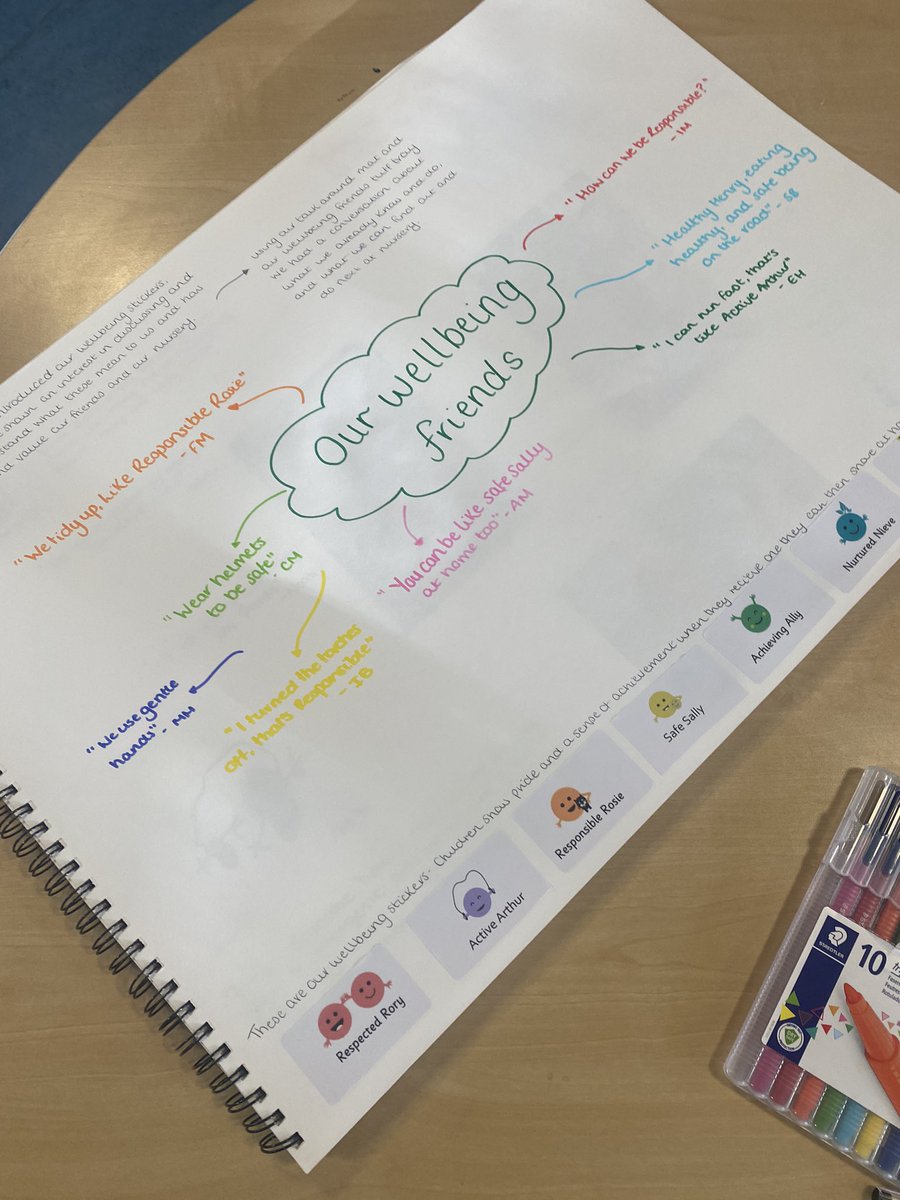 introduced our wellbeing stickers.
shown an interest in discussing and
stand what these mean to us and how
value our friends and our nursery.
using our talk around mat and
our wellbeing friends tuff tray
we had a conversation about
what we already know and do,
and what we can find out and
do next at nursery.
Our wellbeing
friends
"How can we be Responsible?"
- IM
"Healthy Henry, eating
healthy, and safe being
on the road" - SB
"I can run fast, that's
like Active Arthur"
- EH
"We tidy up, like Responsible Rosie"
- FM
"Wear helmets
to be safe"
- CM
"You can be like safe sally
at home too" - AM
"I turned the torches
off, that's Responsible"
- IB
"We use gentle
hands" - MM
These are our wellbeing stickers - Children show pride and a sense of achievement when they recieve one they can then share at
Respected Rory
Active Arthur
Responsible Rosie
Safe Sally
Achieving Ally
Nurtured Nieve
STAEDTLER
10